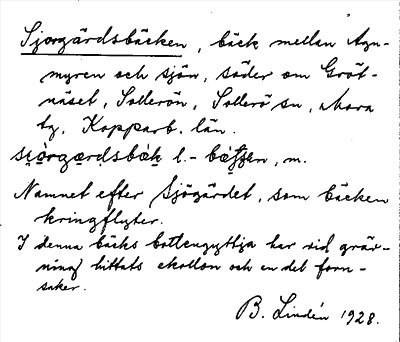 Sjorgärdsbäcken, bäck mellan Agn-
myren och sjön, söder om Gröt-
näset, Sollerön, Sollerö sn, Mora
tg. Kopparb. län.
l.- m.
Namnet efter Sjögärdet, som bäcken
kringflyter.
I denna bäcks bottengyttja har vid gräv-
ning hittats ekollon och en del forn-
saker.
B. Lindén 1928.